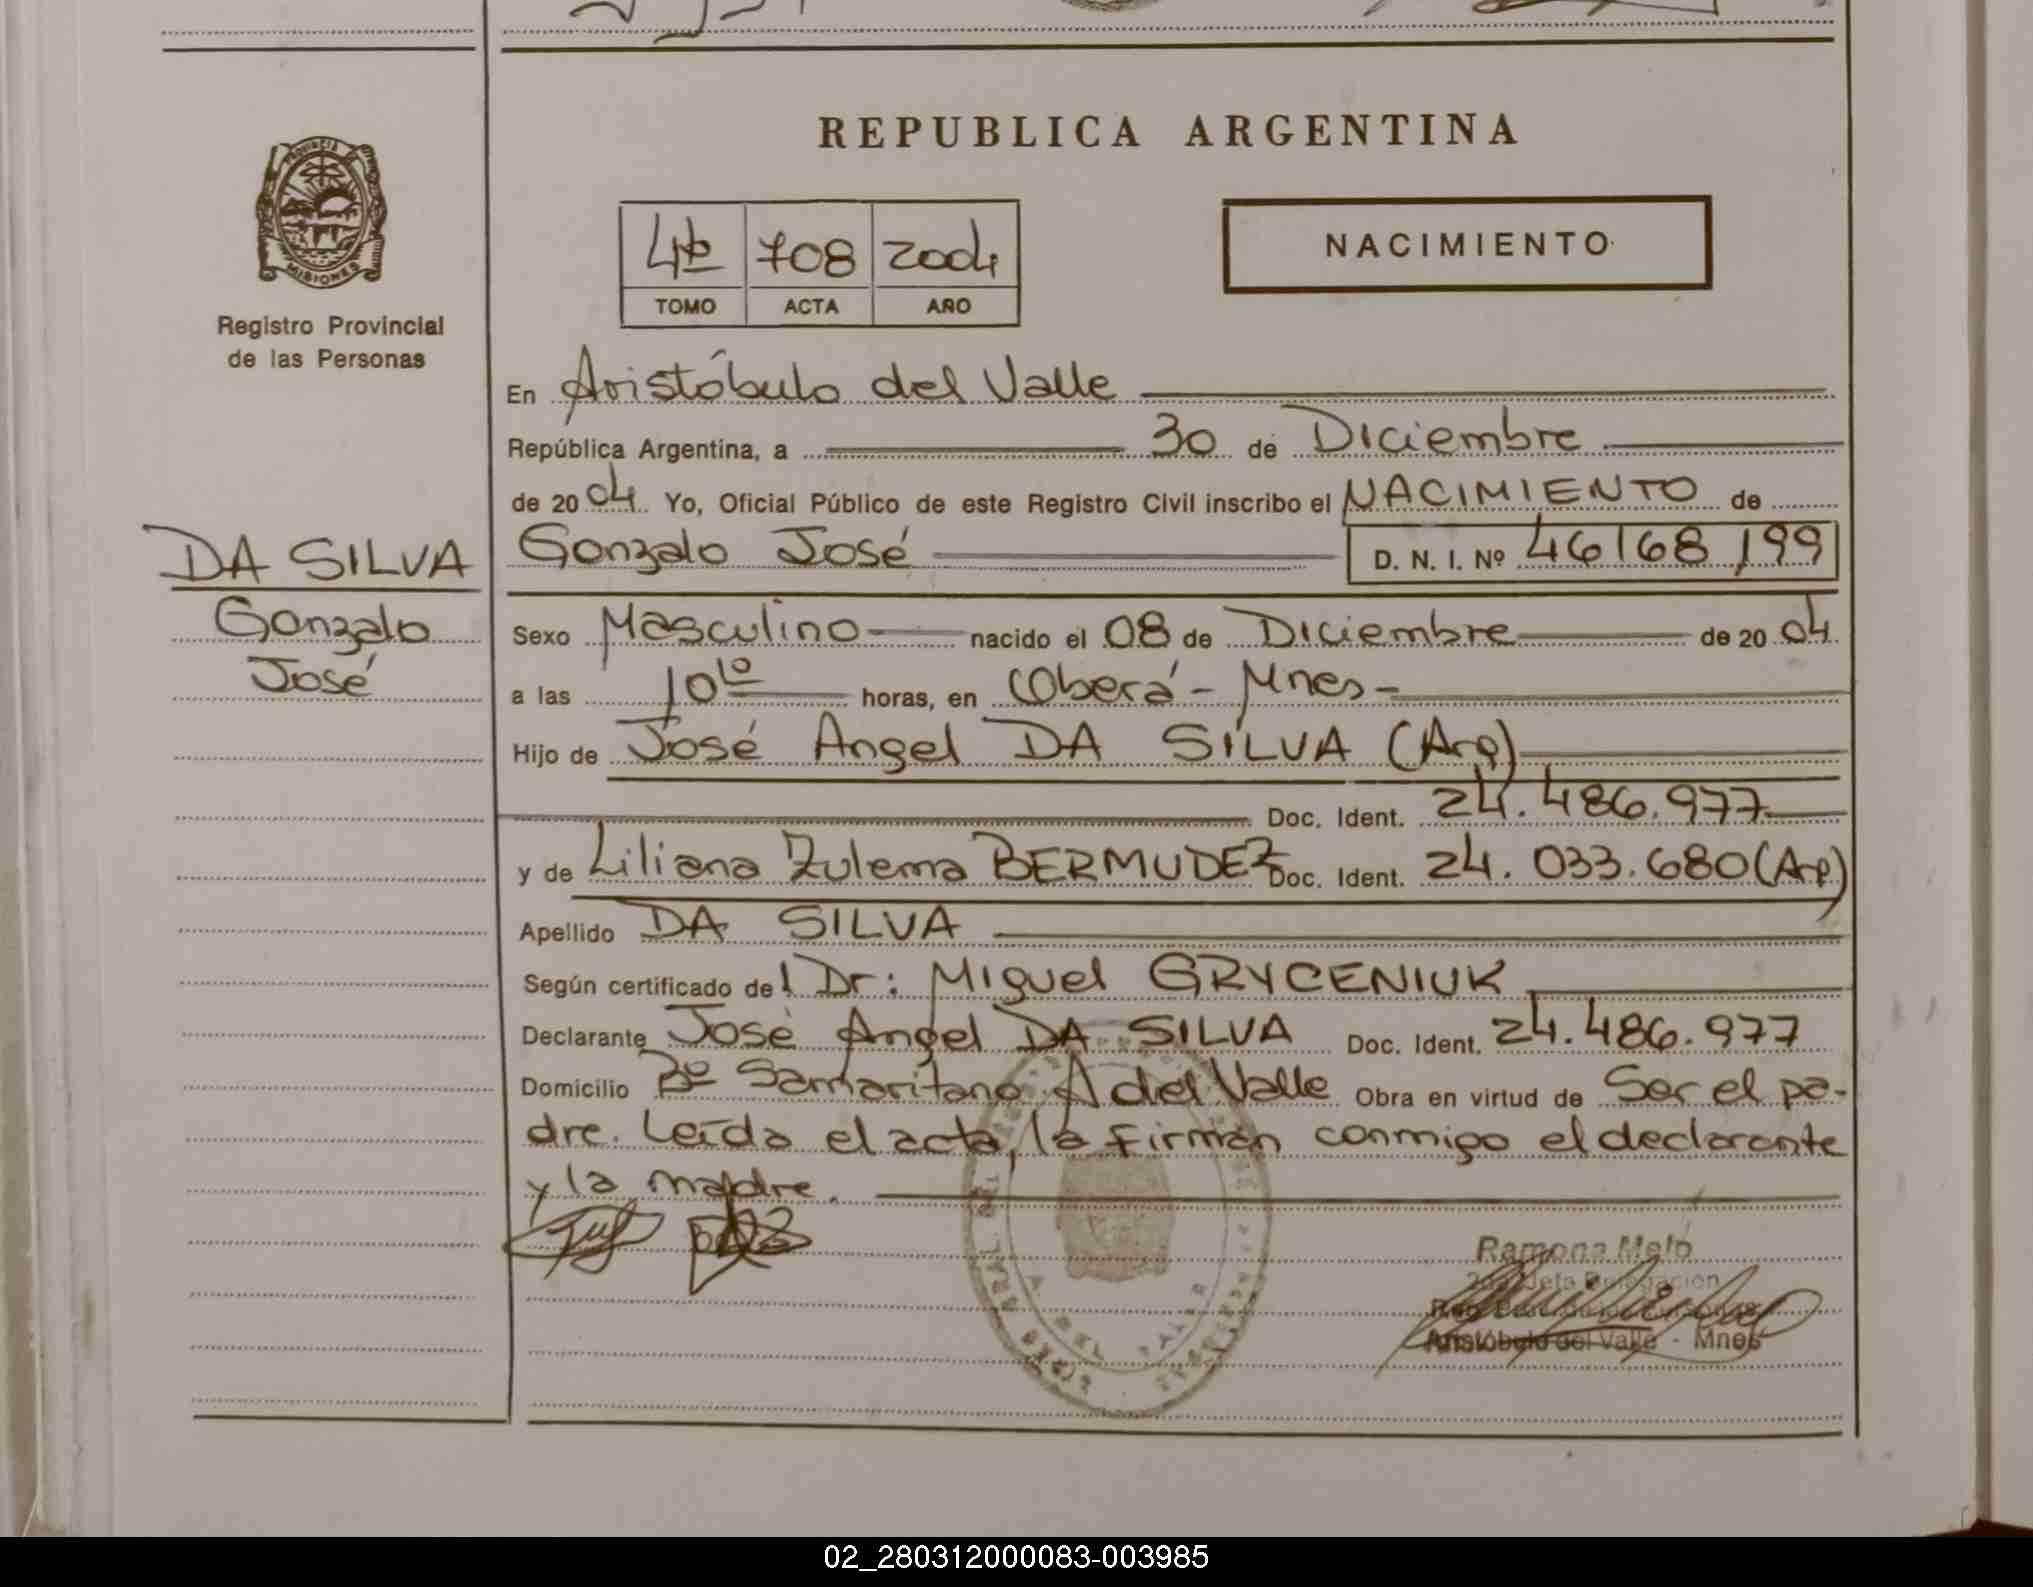 REPUBLICA ARGENTINA
PROVINCIA DE
MISIONES
Registro Provincial
de las Personas
4to 708 2004
TOMO ACTA AÑO
NACIMIENTO
En Aristóbulo del Valle
República Argentina, a 30 de Diciembre
de 20 04 Yo, Oficial Público de este Registro Civil inscribo el NACIMIENTO de
DA SILVA
Gonzalo
José
Gonzalo José D. N. I. Nº 46168199
Sexo Masculino nacido el 08 de Diciembre de 20 04
a las 10 10 horas, en Oberá - Mnes -
Hijo de José Angel DA SILVA (Arg)
Doc. Ident. 24.486.977
y de Liliana Zulema BERMUDEZ Doc. Ident. 24.033.680 (Arg)
Apellido DA SILVA
Según certificado del Dr: Miguel GRYCENIUK
Declarante José Angel DA SILVA Doc. Ident. 24.486.977
Domicilio Bº Samaritano. A del Valle Obra en virtud de Ser el pa-
dre. Leída el acta, la firman conmigo el declarante
y la madre.
Ramona Melo
2da Jefa Delegación
Aristóbulo del Valle - Mnes
02_280312000083-003985